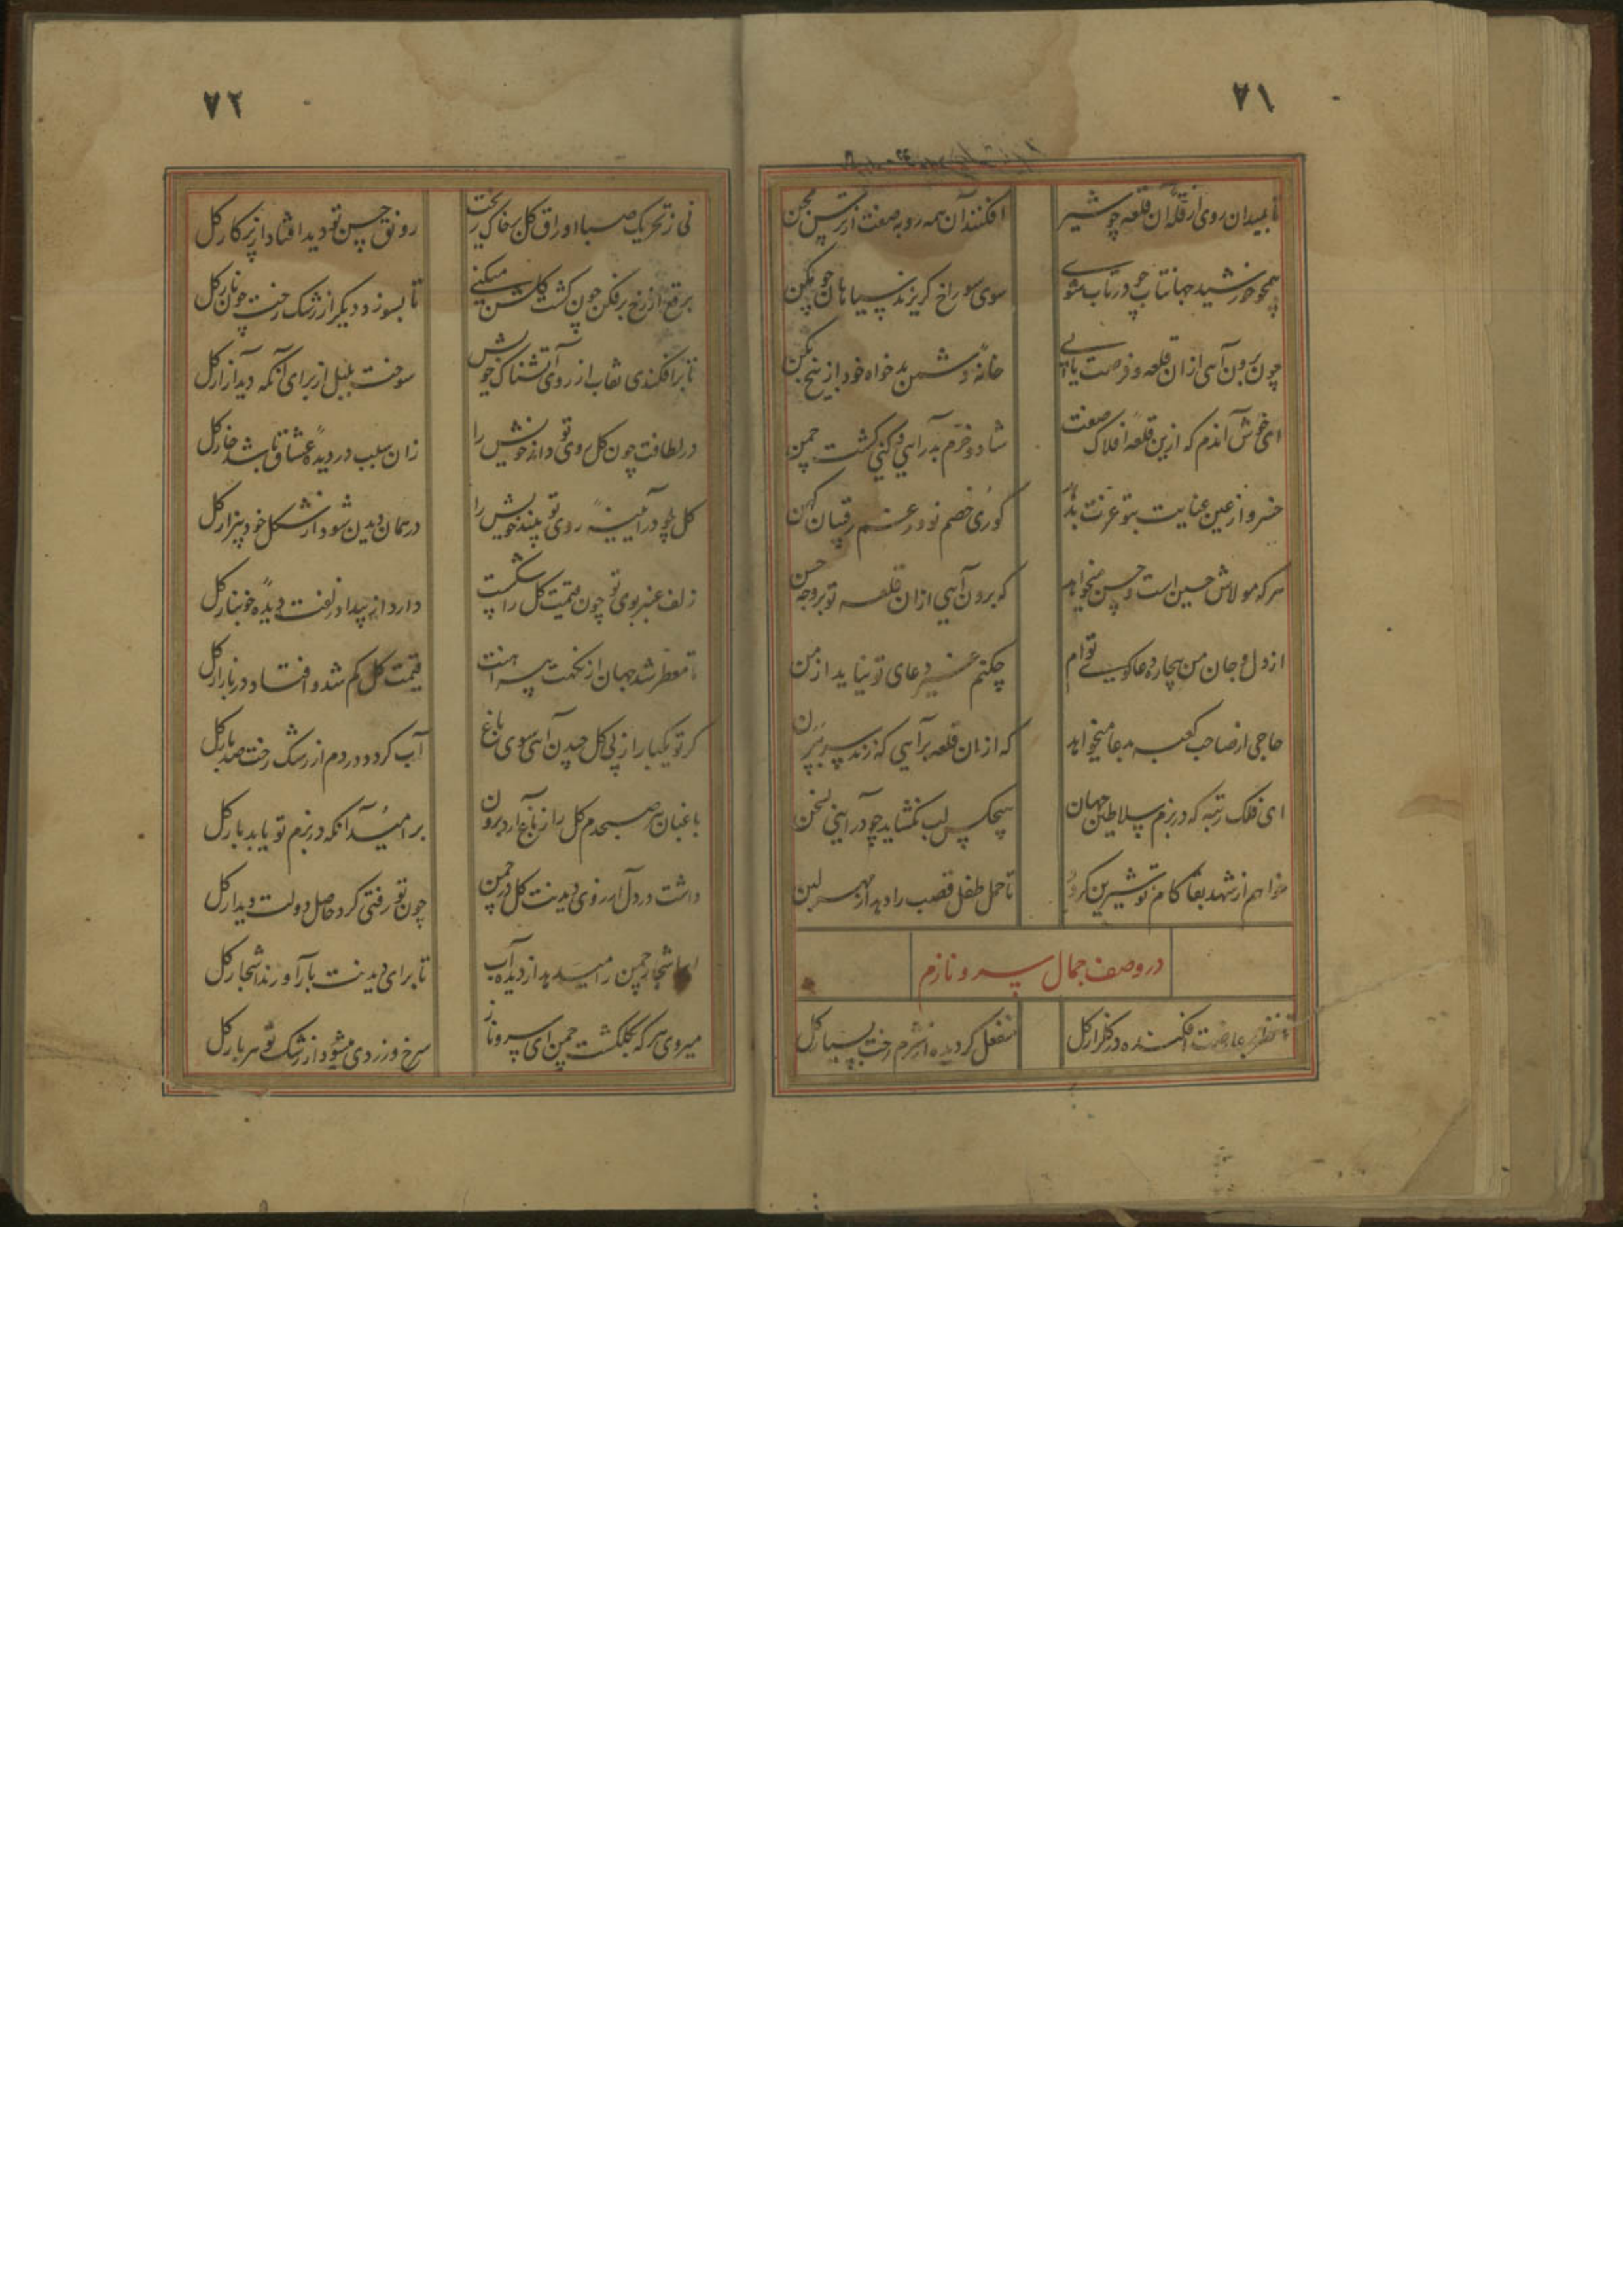 ۷۱
تا بمیدان روی از قلهٔ آن قلعه چو شیر
افکنند آن همه روبه صفت از ترس
همچو خورشید جهانتاب چو در تاب شوی
سوی سوراخ گریزند سیاهان چون
چون برون آیی ازان قلعه و فرصت یابی
خانهٔ دشمن بدخواه خود از بیخ بکن
ای خوش آندم که ازین قلعهٔ افلاک صفت
شاد و خرم بدر آیی و کنی کشت چمن
خسرو از عین عنایت بتو عزت بدهد
کوری خصم نو و رغم رقیبان کهن
هر که مولاش حسین است و حسن میخواهد
که برون آیی ازان قلعه تو بر وجه حسن
از دل و جان من بیچاره دعاگوی توام
چکنم غیر دعای تو نیاید از من
حاجی از صاحب کعبه بدعا میخواهد
که ازان قلعه برآیی
ای فلک رتبه که در بزم سلاطین جهان
هیچکس لب نگشاید چو درآیی بسخن
خواهم از شهد بقا کام تو شیرین گردد
تا حمل طفل قصب را دهد از مهر لبن
در وصف جمال سرو نازم
عارضت افکنده در گلزار گل
منفعل گردیده از شرم رخت بسیار گل
۷۲
نی ز تحریک صبا اوراق گل بر خاک ریخت
رونق حسن تو دید افتاد از پرکار گل
برقع از رخ برفکن چون گشت گلشن میکنی
تا بسوزد دیگر از رشک رخت چون نار گل
تا برافکندی نقاب از روی آتشناک خویش
سوخت بلبل از برای آنکه دید آزار گل
در لطافت چون گل روی تو داند خویش را
زان سبب در دیدهٔ عشاق باشد خار گل
گل چو در آیینهٔ روی تو بیند خویش را
در همان دیدن شود از شکل خود بیزار گل
زلف عنبر بوی تو چون قیمت گل را شکست
دارد از بیداد زلفت دیدهٔ خونبار گل
تا معطر شد جهان از نکهت پیراهنت
قیمت گل کم شد و افتاد در بازار گل
گر تو یکبار از پی گل چیدن آیی سوی باغ
آب گردد در دم از رشک رخت صد بار گل
باغبان هر صبحدم گل را ز باغ آرد برون
بر امید آنکه در بزم تو یابد بار گل
داشت در دل آرزوی دیدنت گل در چمن
چون تو رفتی کرد حاصل دولت دیدار گل
ابر اشجار چمن را میدهد از دیده آب
تا برای دیدنت بار آورند اشجار گل
میروی هر گه بگلگشت چمن ای سرو ناز
سرخ و زردی میشود از رشک تو هر بار گل